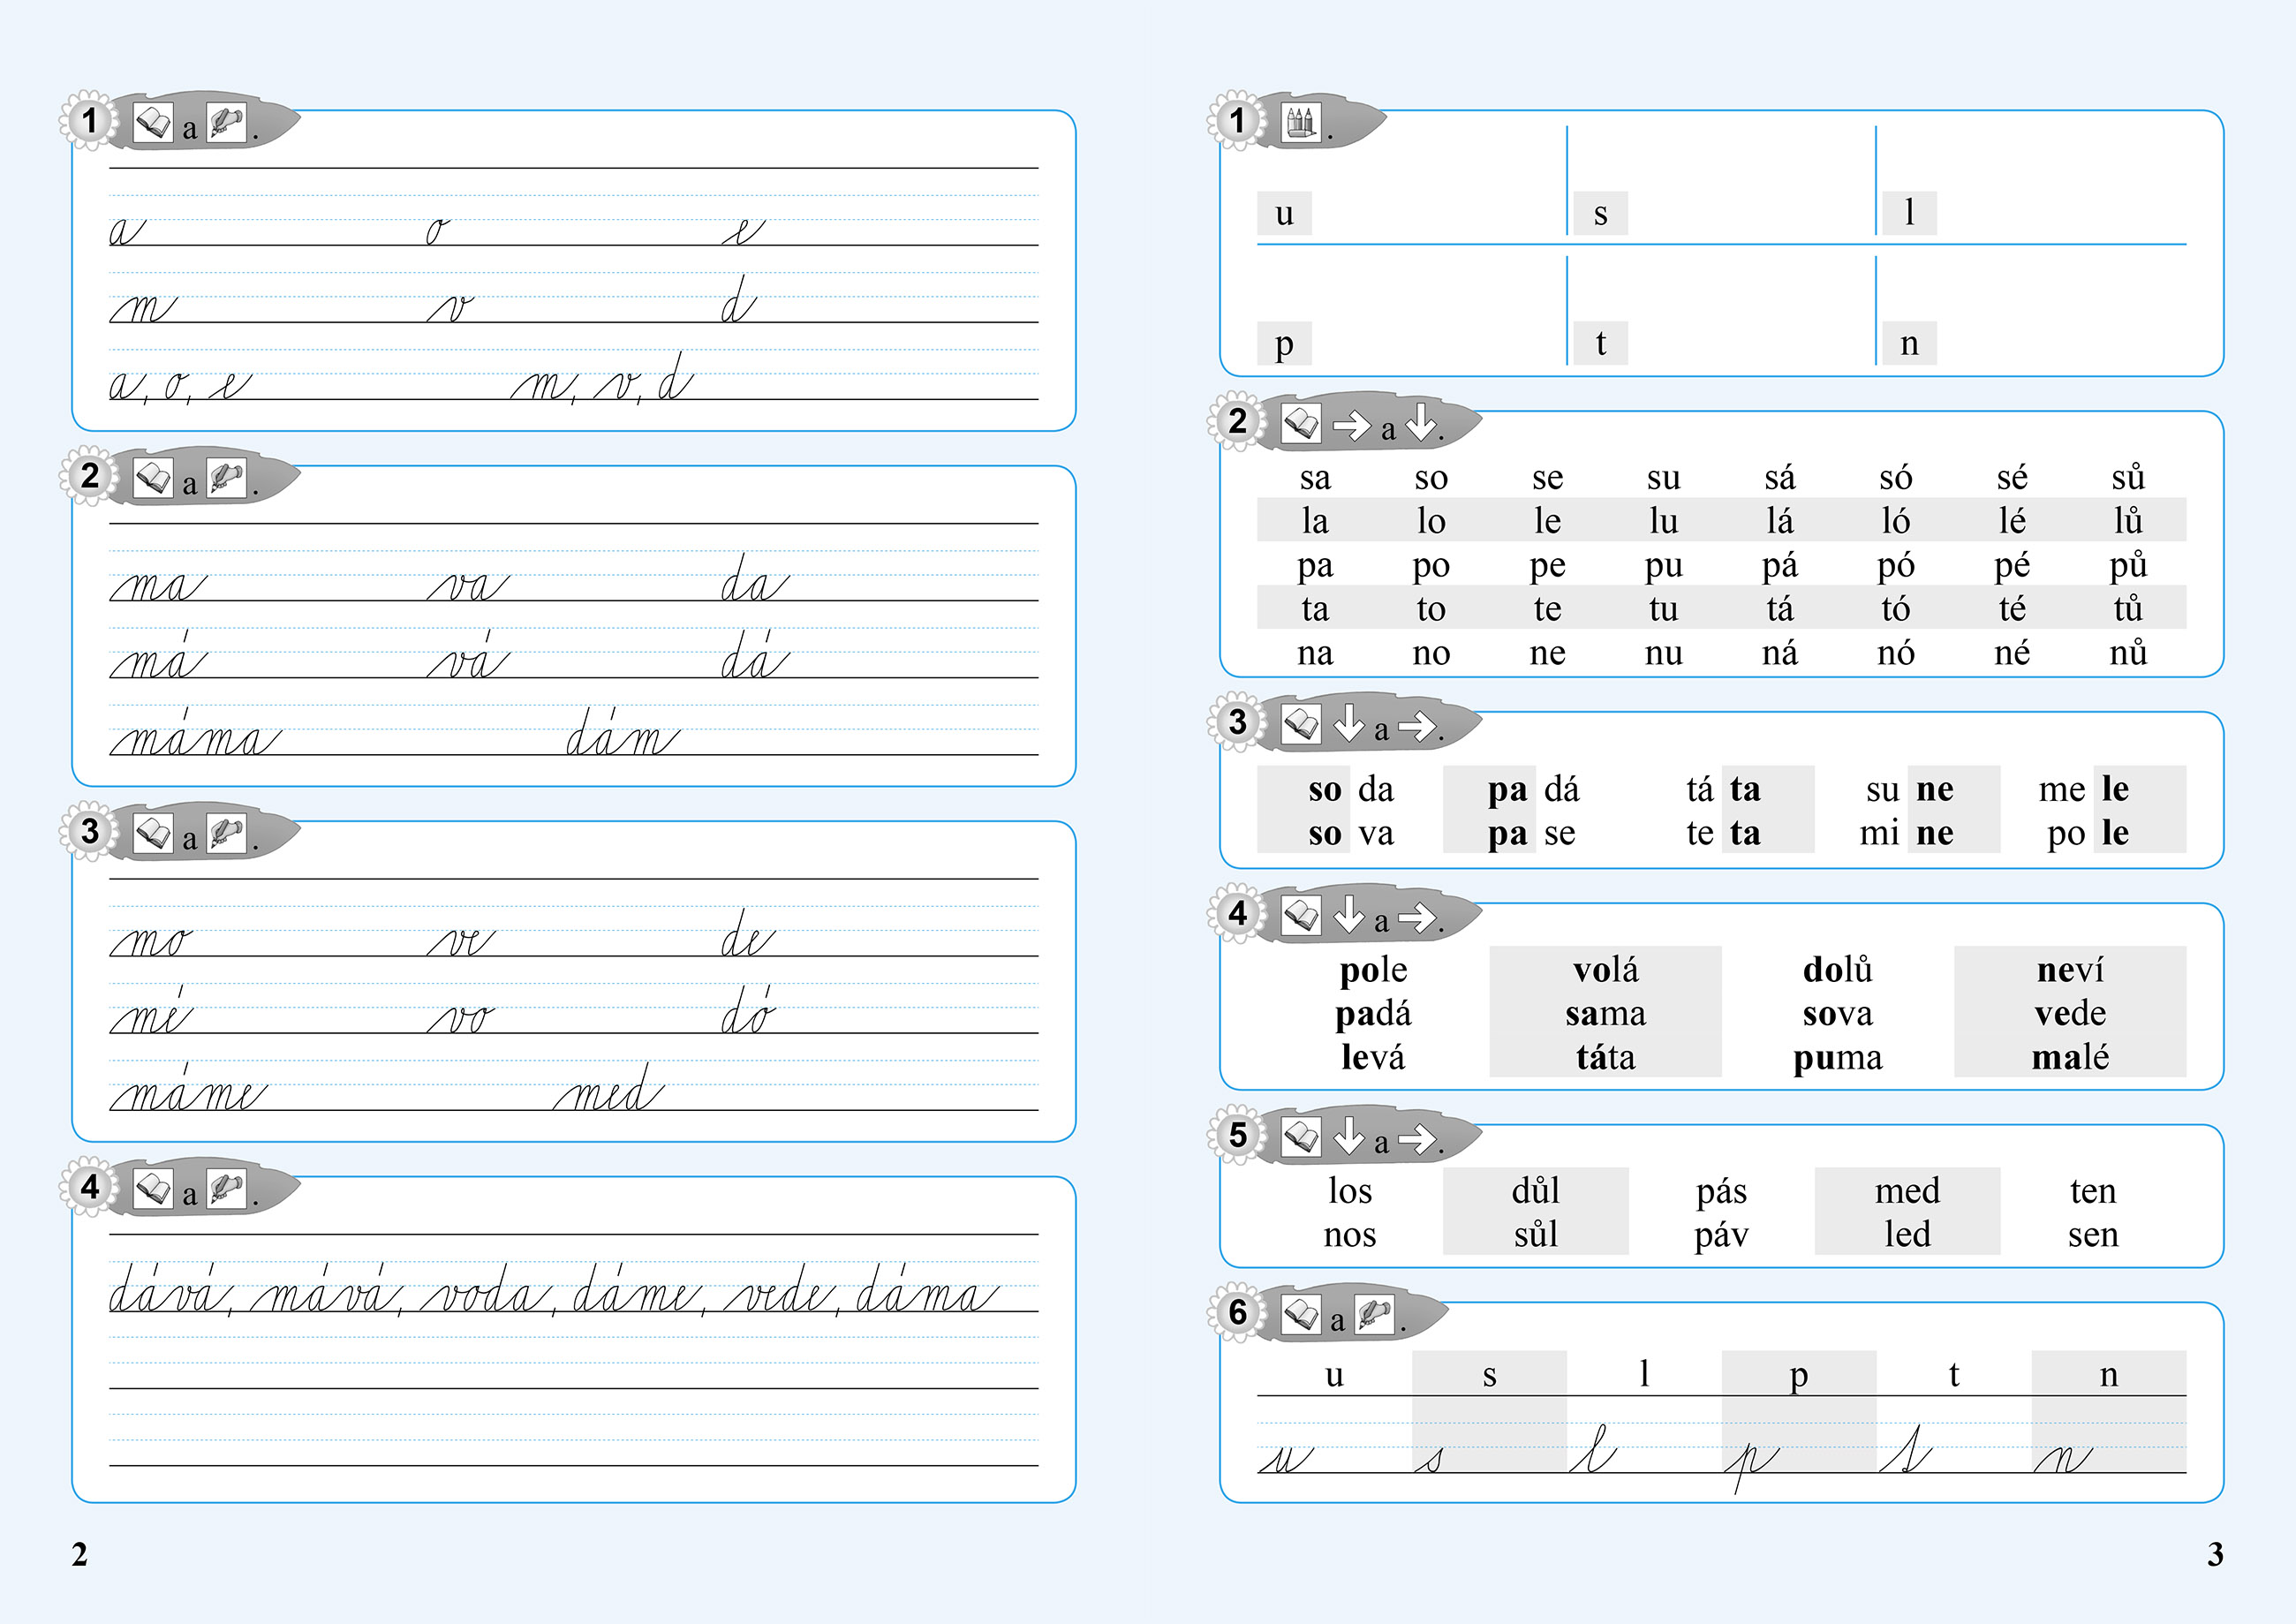 1 a .
a o e
m v d
a, o, e m, v, d
2 a .
ma va da
má vá dá
máma dám
3 a .
mo ve de
mé vo dó
máme med
4 a .
dává, mává, voda, dáme, vede, dáma
2
1 .
u s l
p t n
2 → a ↓.
sa so se su sá só sé sů
la lo le lu lá ló lé lů
pa po pe pu pá pó pé pů
ta to te tu tá tó té tů
na no ne nu ná nó né nů
3 ↓ a →.
so da pa dá tá ta su ne me le
so va pa se te ta mi ne po le
4 ↓ a →.
pole volá dolů neví
padá sama sova vede
levá táta puma malé
5 ↓ a →.
los důl pás med ten
nos sůl páv led sen
6 a .
u s l p t n
u s l p t n
3